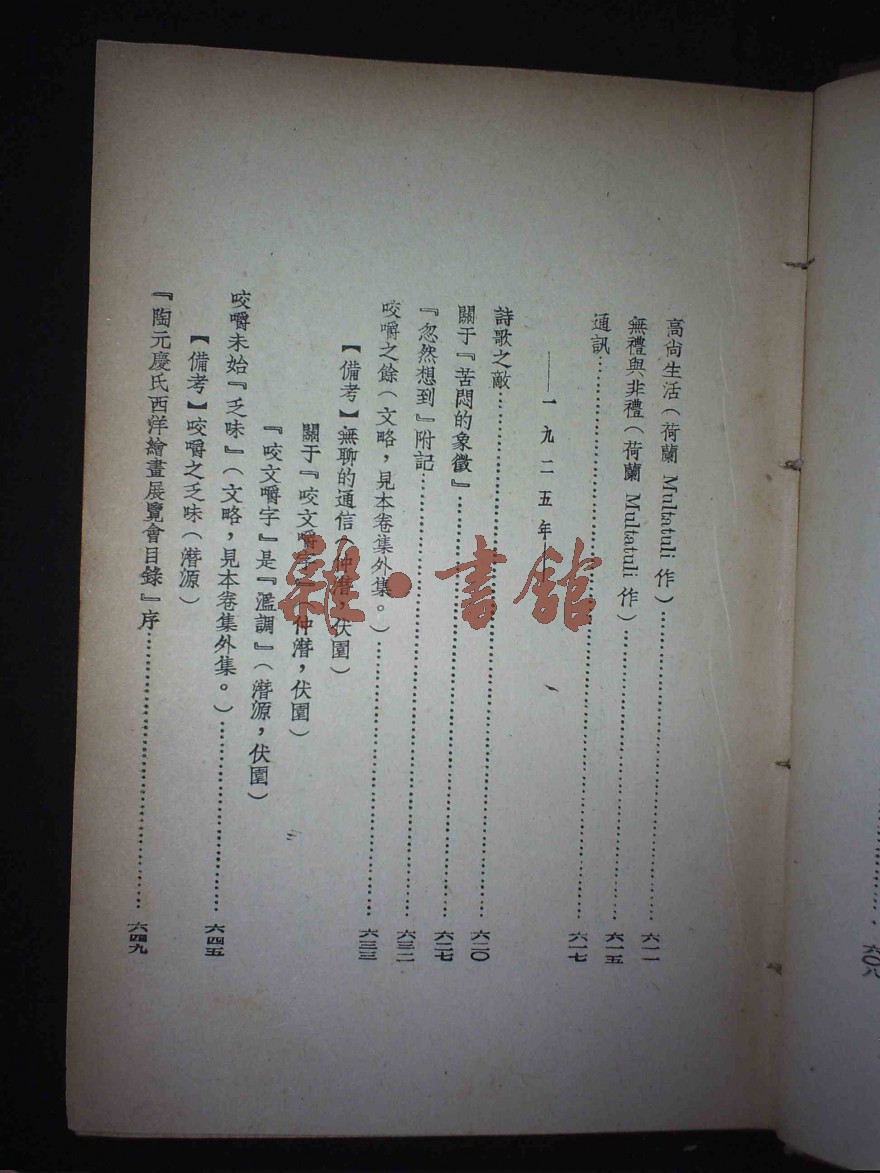 高尙生活（荷蘭 Multatuli 作）…………六一一
無禮與非禮（荷蘭 Multatuli 作）…………六一五
通訊…………六一七
——一九二五年——
詩歌之敵…………六二〇
關于『苦悶的象徵』…………六二七
『忽然想到』附記…………六三二
咬嚼之餘（文略，見本卷集外集。）…………六三三
【備考】無聊的通信（仲潛，伏園）
關于『咬文嚼字』（仲潛，伏園）
『咬文嚼字』是『濫調』（潛源，伏園）
咬嚼未始『乏味』（文略，見本卷集外集。）…………六四五
【備考】咬嚼之乏味（潛源）
『陶元慶氏西洋繪畫展覽會目錄』序…………六四九
六〇八
雜·書館